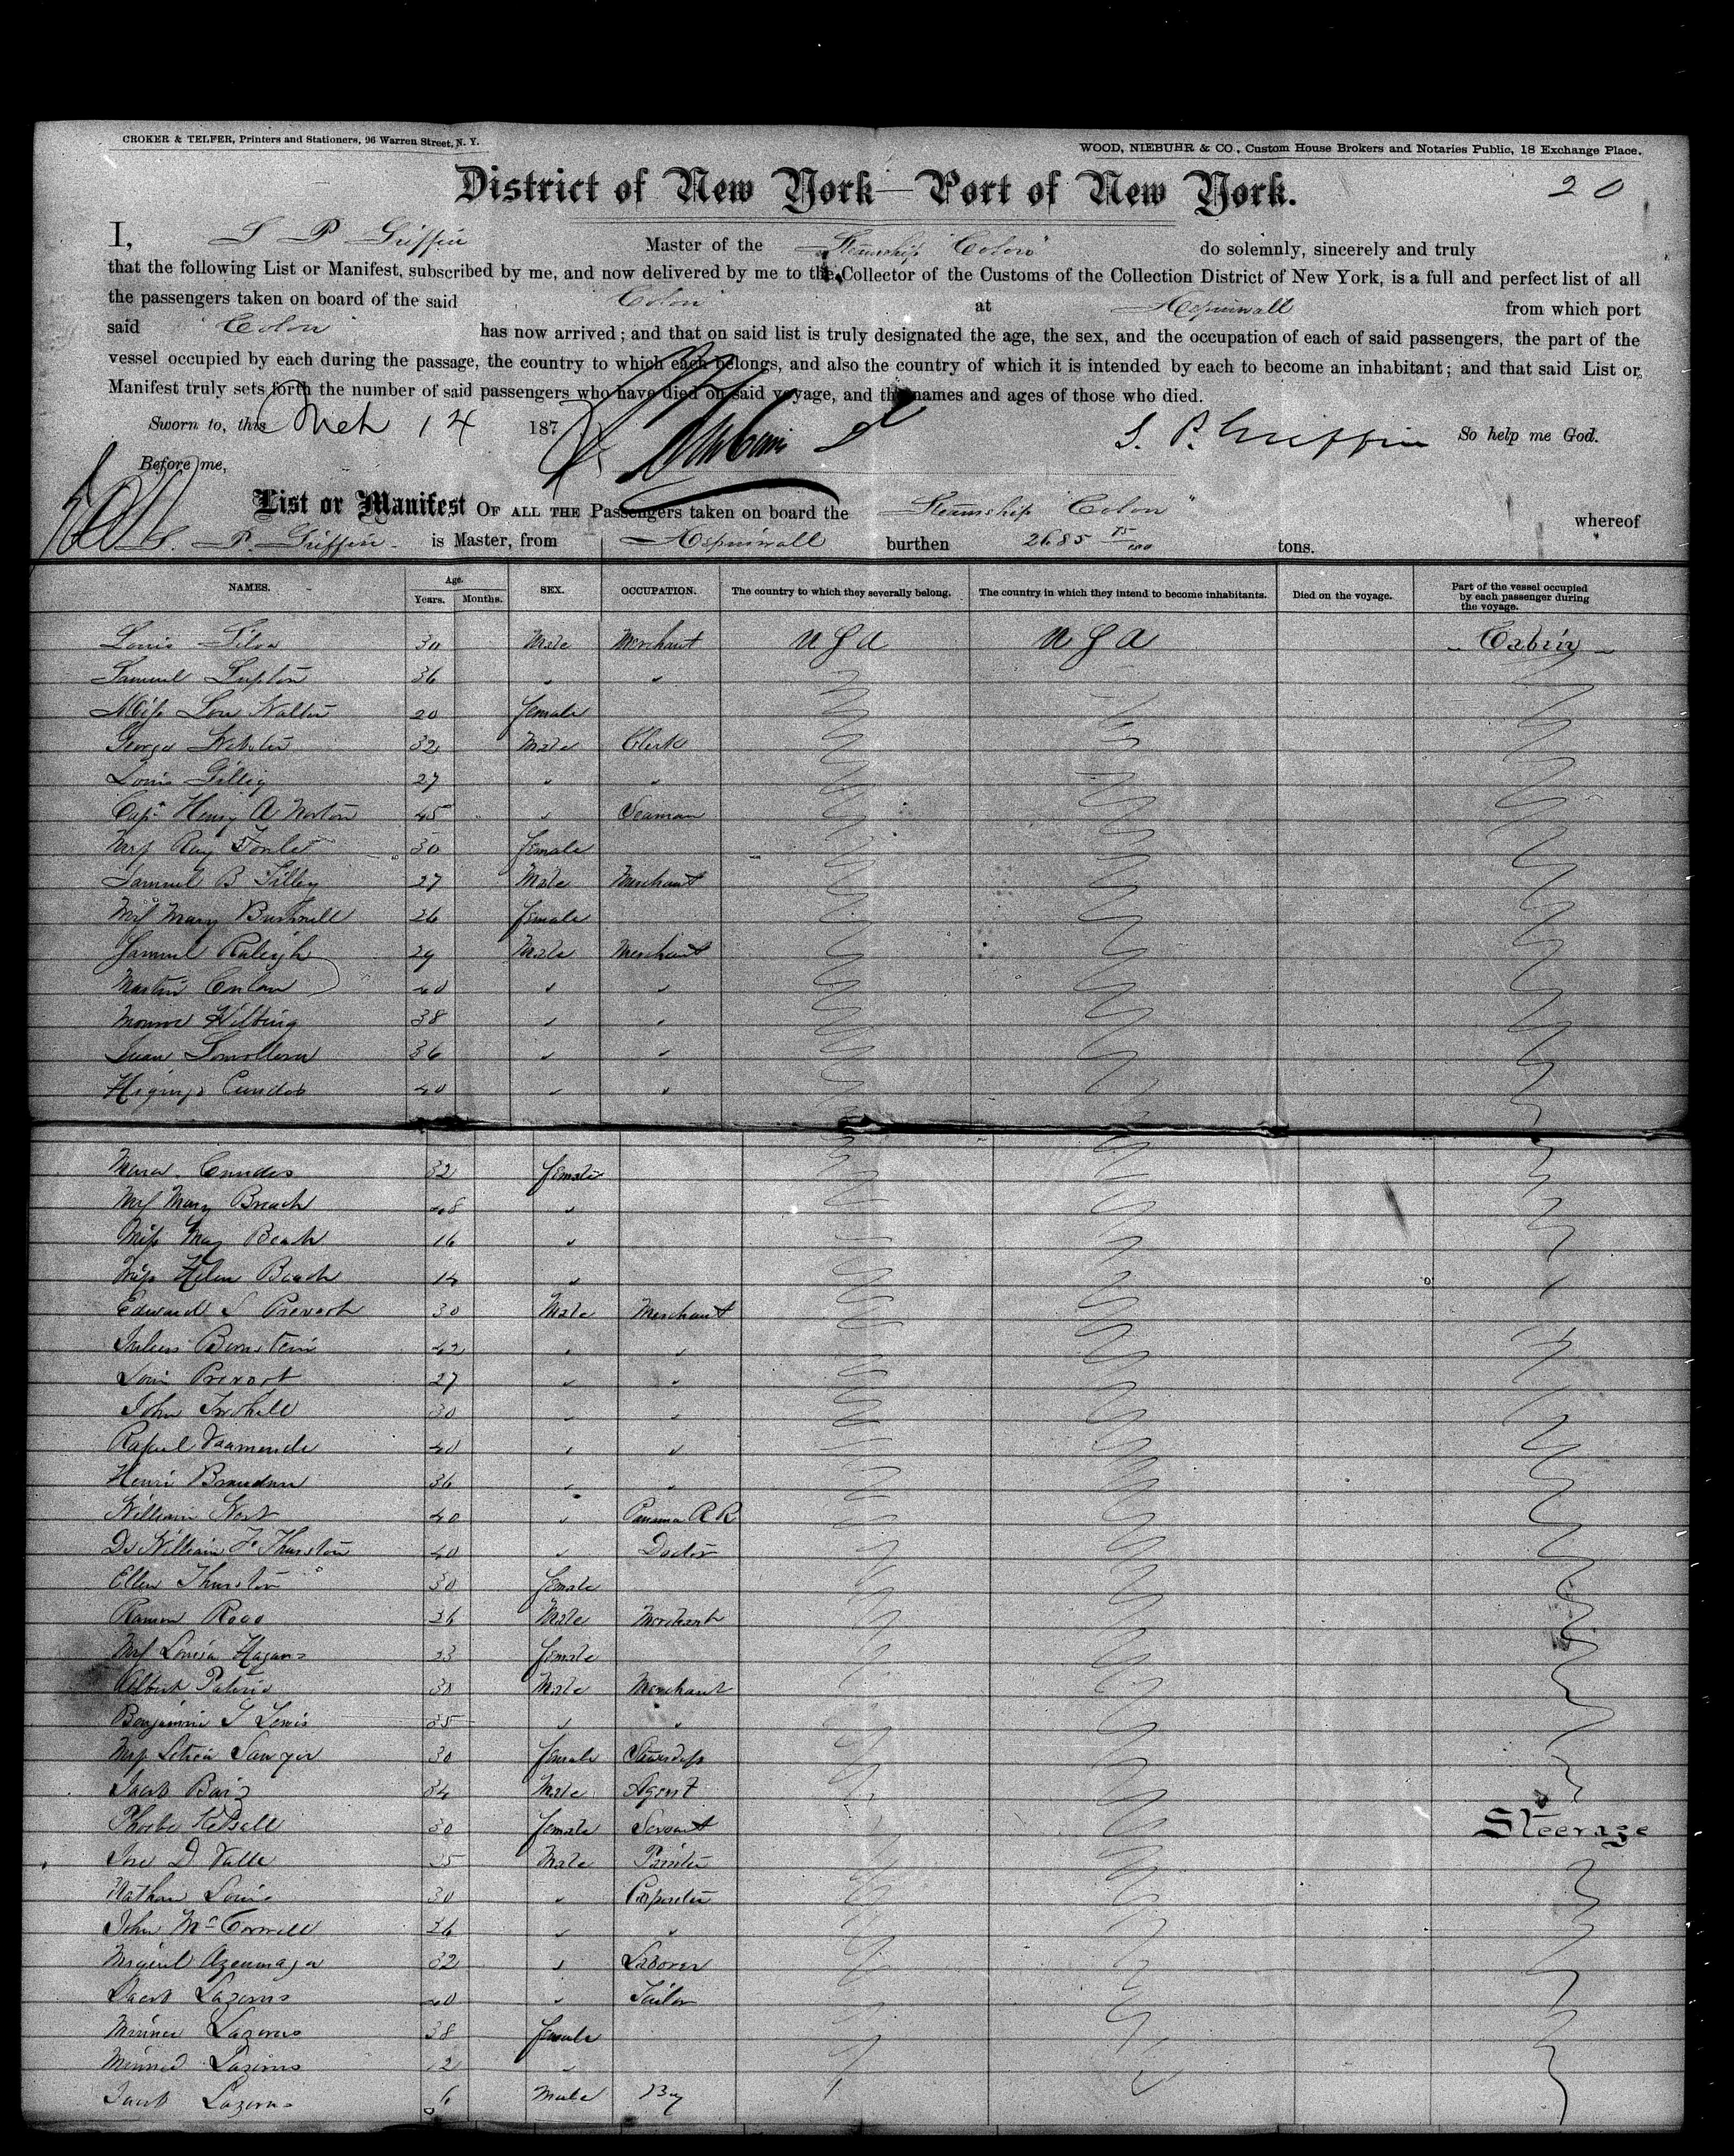 CROKER & TELFER, Printers and Stationers, 96 Warren Street, N. Y.
WOOD, NIEBUHR & CO., Custom House Brokers and Notaries Public, 18 Exchange Place.
District of New York—Port of New York.
20
I, S P Griffin Master of the Steamship "Colon" do solemnly, sincerely and truly
that the following List or Manifest, subscribed by me, and now delivered by me to the Collector of the Customs of the Collection District of New York, is a full and perfect list of all
the passengers taken on board of the said "Colon" at Aspinwall from which port
said "Colon" has now arrived; and that on said list is truly designated the age, the sex, and the occupation of each of said passengers, the part of the
vessel occupied by each during the passage, the country to which each belongs, and also the country of which it is intended by each to become an inhabitant; and that said List or
Manifest truly sets forth the number of said passengers who have died on said voyage, and the names and ages of those who died.
Sworn to, this Mch 14 187 S. P. Griffin So help me God.
Before me,
List or Manifest OF ALL THE Passengers taken on board the Steamship "Colon" whereof
S. P. Griffin is Master, from Aspinwall burthen 2685 75/100 tons.
NAMES. Age. Years. Months. SEX. OCCUPATION. The country to which they severally belong. The country in which they intend to become inhabitants. Died on the voyage. Part of the vessel occupied by each passenger during the voyage.
Louis Silva 30 Male Merchant U S A U S A Cabin
Samuel Lupton 36 " "
Miss Lou Walter 20 female
George Webster 32 Male Clerk
Louis 27 " "
Capt Henry A Norton 45 " Seaman
Mrs Ray 30 female
Samuel B Tilley 27 Male Merchant
Mrs Mary Bushnell 26 female
Samuel Raleigh 29 Male Merchant
Martin Conlan 40 " "
Monroe 38 " "
Juan 36 " "
40 " "
32 female
Mrs Mary Breach 48 "
Miss May Beach 16 "
Miss Helen Beach 14 "
Edward S Prevost 30 Male Merchant
Julius Bernstein 42 " "
Louis Prevost 27 " "
John 30 " "
Rafael Vaamonde 40 " "
Henri 36 " "
William West 40 " Panama R R
Dr William F Thurston 40 " Doctor
Ellen Thurston 30 female
Ramon 26 Male Merchant
Mrs Louisa Hagans 23 female
Albert 38 Male Merchant
Benjamin S Lewis 35 " "
Mrs Leticia Sawyer 30 female Stewardess
Jacob Baiz 34 Male Agent
Phoebe Kelsall 30 female Servant Steerage
Jose D Valle 35 Male Painter
Nathan Louis 30 " Carpenter
John McCormell 26 " "
Miguel 32 " Laborer
Jacob Lazerus 40 " Tailor
Lazerus 38 female
Lazerus 12 "
Jacob Lazerus 6 Male Boy